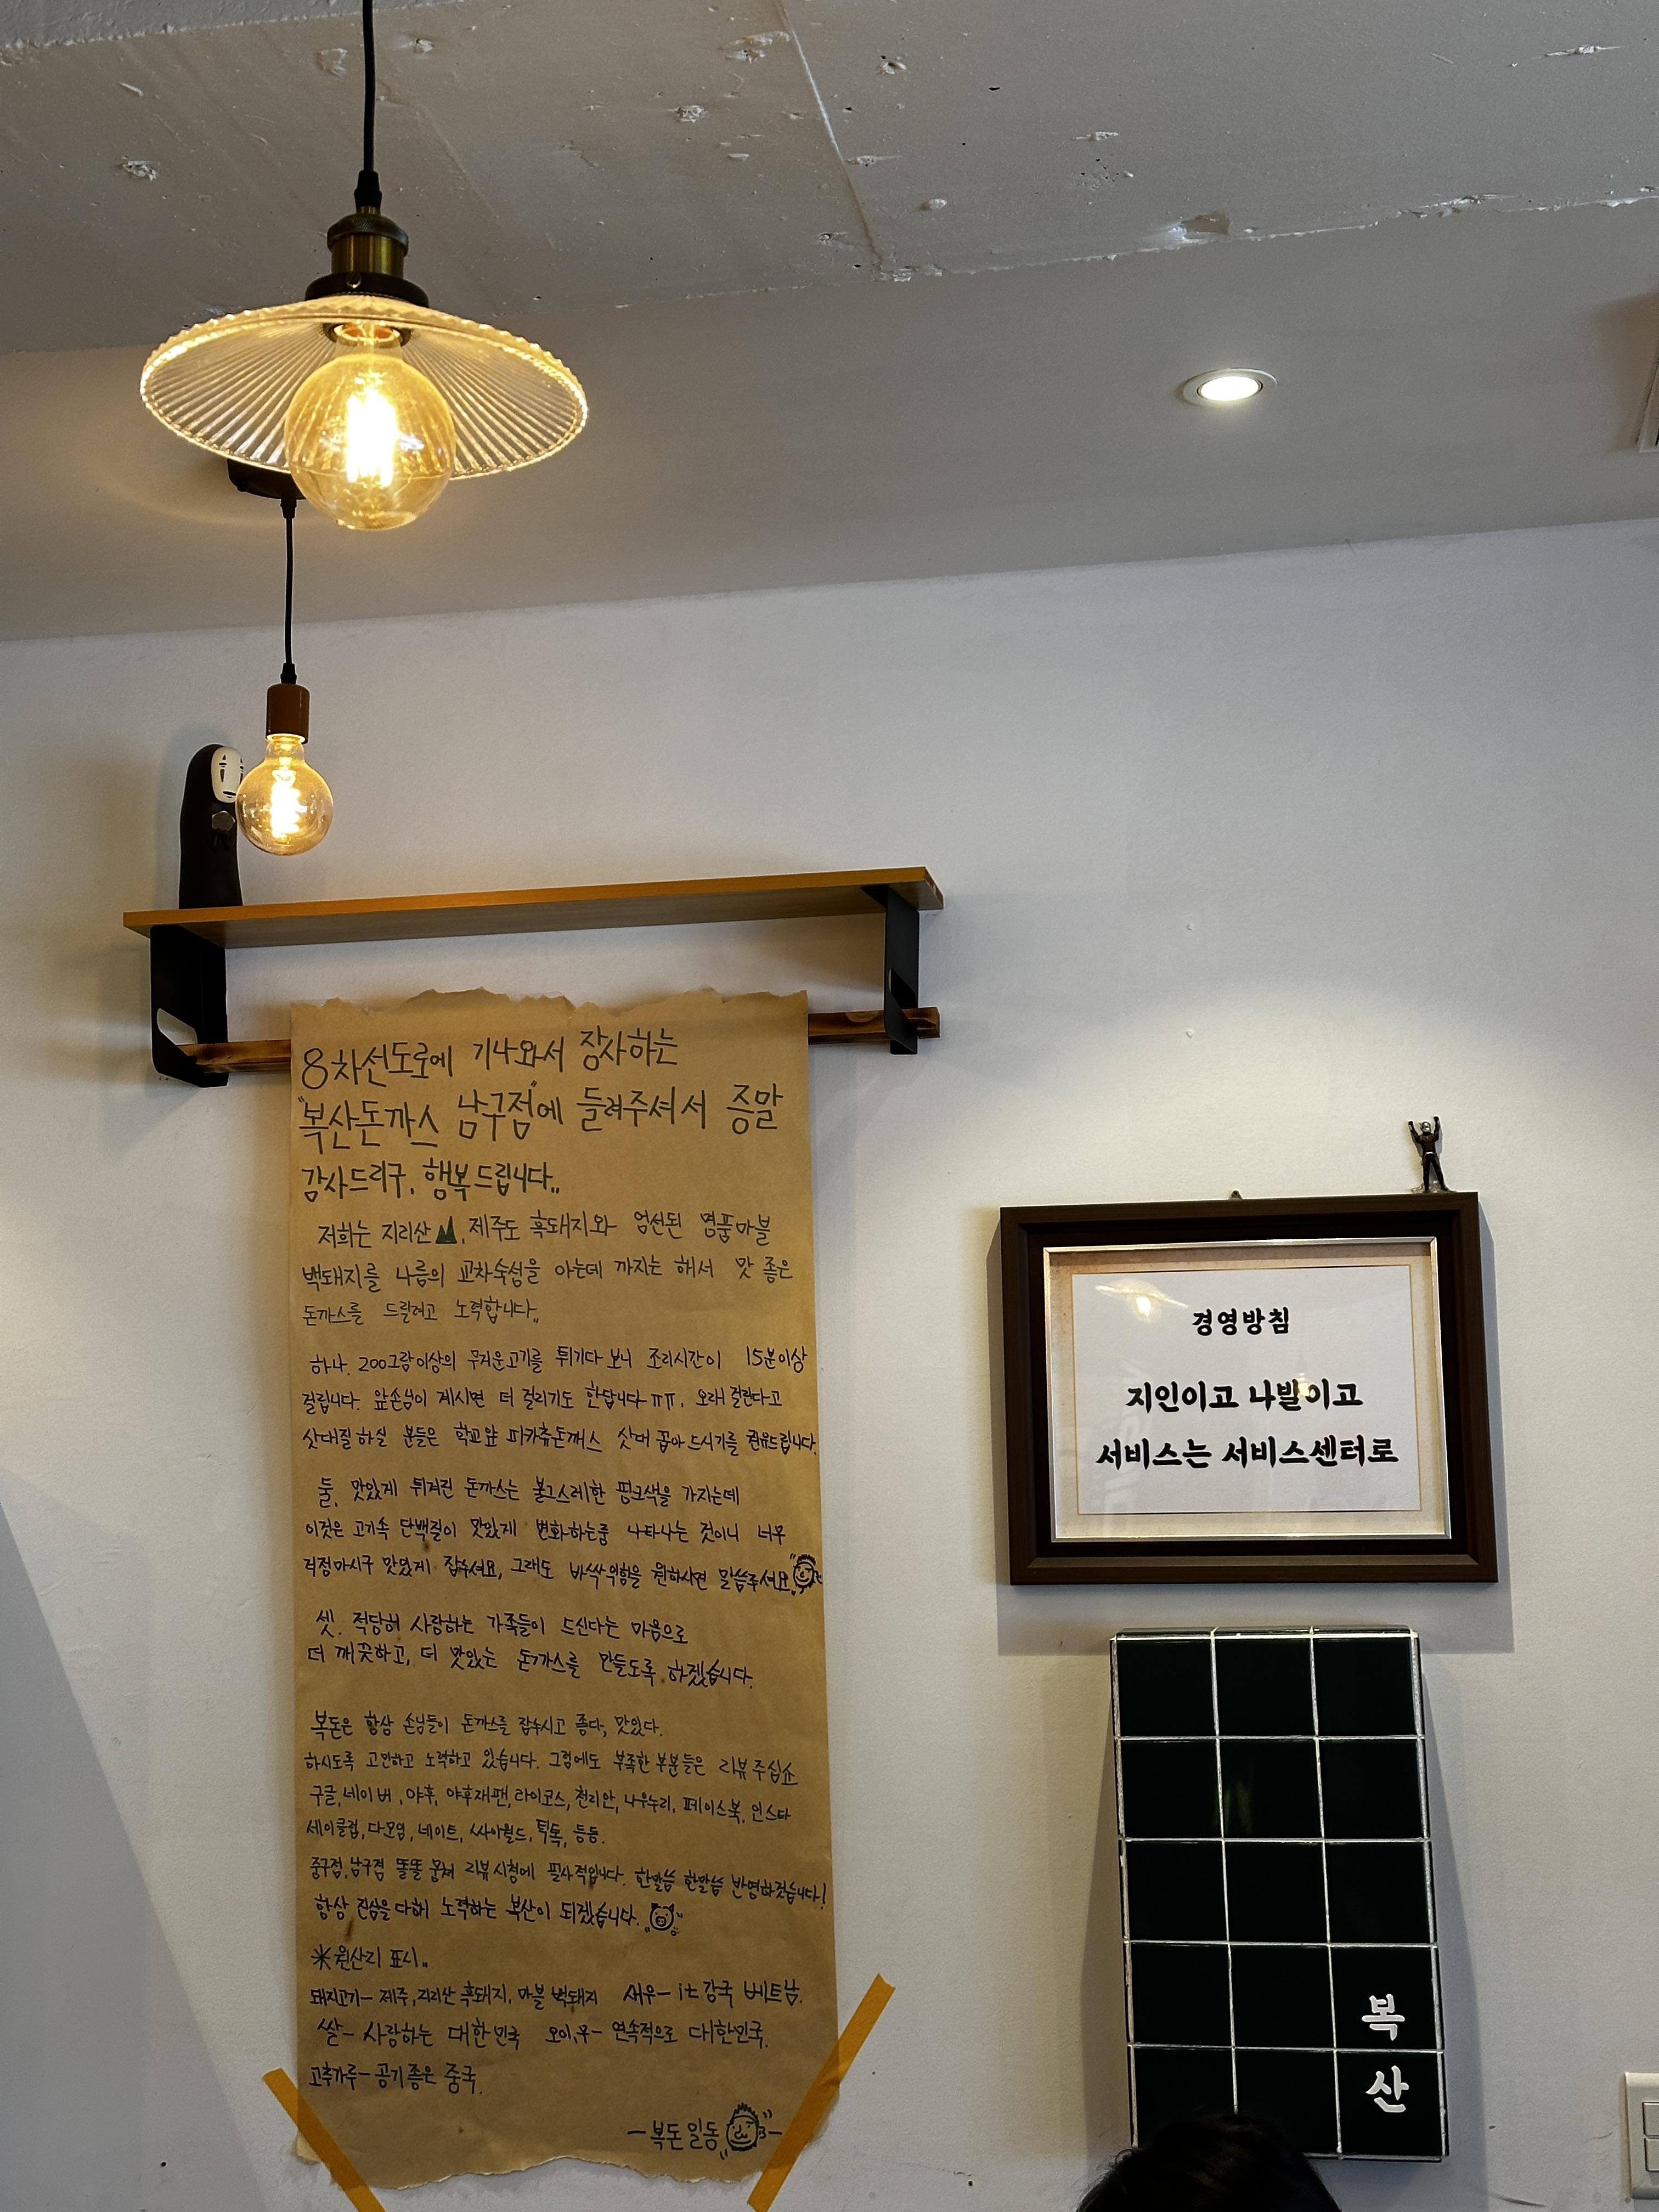 8차선도로에 기나와서 장사하는
"복산돈까스 남구점"에 들려주셔서 증말
감사드리구, 행복드립니다..
저희는 지리산, 제주도 흑돼지와 엄선된 명품마블
백돼지를 나름의 교차숙성을 아는데 까지는 해서 맛 좋은
돈까스를 드릴려고 노력합니다..
하나. 200그람이상의 무거운고기를 튀기다 보니 조리시간이 15분이상
걸립니다. 앞손님이 계시면 더 걸리기도 한답니다ㅠㅠ. 오래걸린다고
삿대질하실 분들은 학교앞 피카츄돈까스 삿대 꼽아드시기를 권유드립니다.
둘, 맛있게 튀겨진 돈까스는 볼그스레한 핑크색을 가지는데
이것은 고기속 단백질이 맛있게 변화하는중 나타나는 것이니 너무
걱정마시구 맛있게 잡수셔요, 그래도 바싹익힘을 원하시면 말씀주셔요
셋. 적당히 사랑하는 가족들이 드신다는 마음으로
더 깨끗하고, 더 맛있는 돈까스를 만들도록 하겠습니다.
복돈은 항상 손님들이 돈까스를 잡수시고 좋다, 맛있다.
하시도록 고민하고 노력하고 있습니다. 그럼에도 부족한 부분들은 리뷰주십쇼
구글, 네이버, 야후, 야후재팬, 라이코스, 천리안, 나우누리, 페이스북, 인스타
세이클럽, 다모임, 네이트, 싸이월드, 틱톡, 등등.
중구점, 남구점 똘똘 뭉쳐 리뷰시청에 필사적입니다. 한말씀 한말씀 반영하겠습니다!
항상 진심을다해 노력하는 복산이 되겠습니다.
※원산지 표시..
돼지고기- 제주, 지리산 흑돼지, 마블 백돼지 새우- it강국 베트남.
쌀- 사랑하는 대한민국 오이,무- 연속적으로 대한민국.
고추가루- 공기좋은 중국.
-복돈일동-
경영방침
지인이고 나발이고
서비스는 서비스센터로
복
산